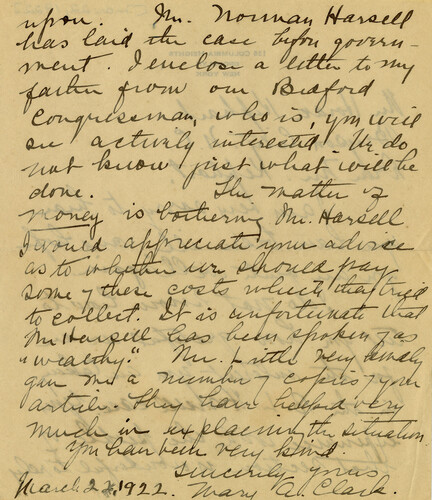 upon. Mr. Norman Harsell
has laid the case before govern-
ment. I enclose a letter to my
father from our Bedford
Congressman, who is, you will
see actively interested. We do
not know just what will be
done. The matter of
money is bothering Mr. Harsell.
I would appreciate your advice
as to whether we should pay
some of these costs which they tried
to collect. It is unfortunate that
Mr Harsell has been spoken of as
"wealthy." Mr. Little very kindly
gave me a number of copies of your
article. They have helped very
much in explaining the situation.
You have been very kind.
Sincerely yours
March 22, 1922. Mary A. Clark.